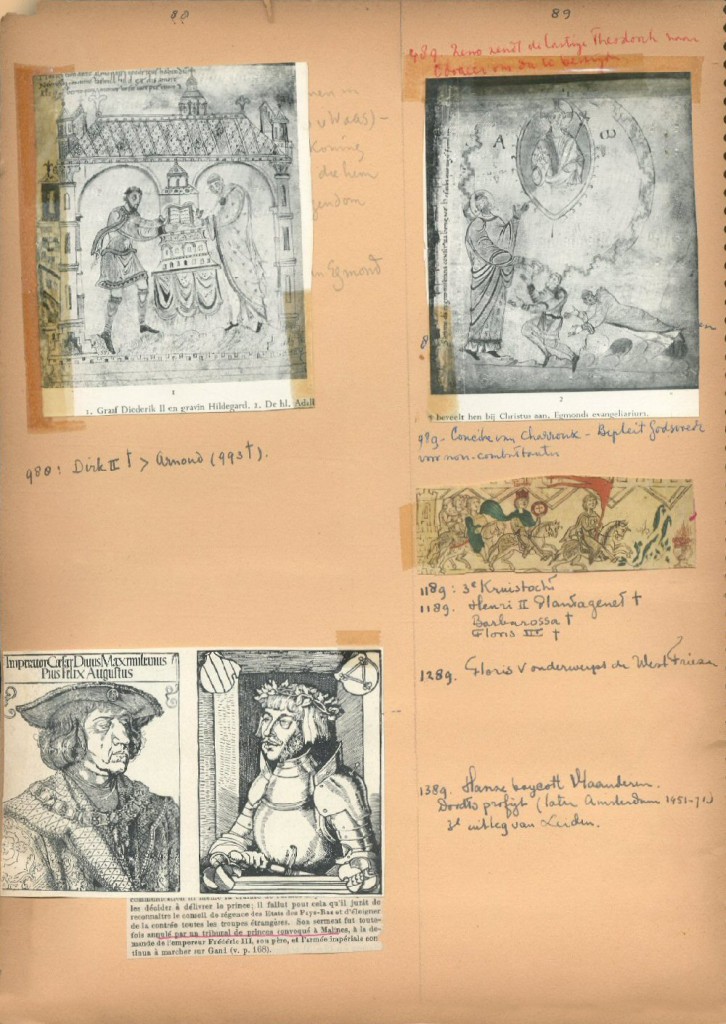 80
nen in
v Waas) –
Koning
die hem
gendom
in Egmond
1
1. Graaf Diederik II en gravin Hildegard. 2. De hl. Adalb
988: Dirk II † > Arnoud (993†).
Imperator Cæsar Divus Maximilianus
Pius Felix Augustus
les décidez à délivrer le prince; il fallut pour cela qu'il jurât de
reconnaître le conseil de régence des Etats des Pays-Bas et d'éloigner
de la contrée toutes les troupes étrangères. Son serment fut toute-
fois annulé par un tribunal de princes convoqué à Malines, à la de-
mande de l'empereur Frédéric III, son père, et l'armée impériale con
tinua à marcher sur Gand (v. p. 168).
89
489. Zeno zendt de lastige Theodorik naar
Odoacer om die te
A ω
2
beveelt hen bij Christus aan. Egmonds evangeliarium.
989. Concilie van Charroux – Bepleit Godsvrede
voor non-combattanten
1189: 3e Kruistocht
1189. Henri II Plantagenet †
Barbarossa †
Floris III †
1289. Floris V onderwerpt de West Friezen
1389. Hanse boycott Vlaanderen.
Dordts profijt (later Amsterdam 1451-71)
3e uitleg van Leiden.